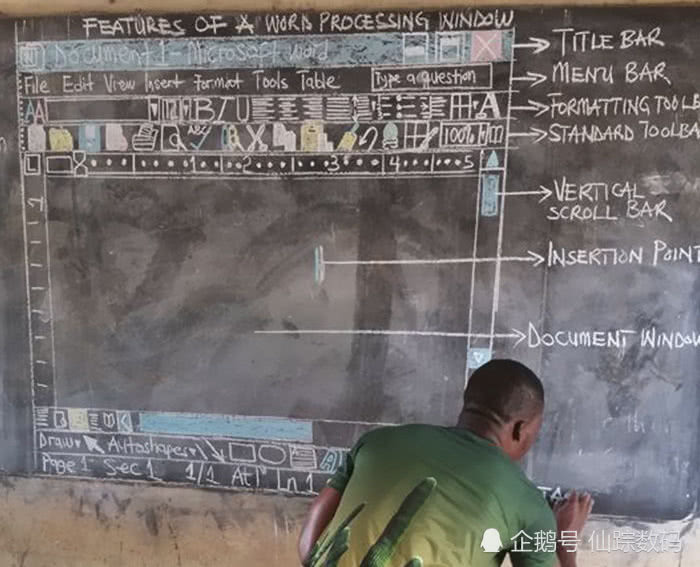 FEATURES OF A WORD PROCESSING WINDOW
Document 1 - Microsoft Word
TITLE BAR
File Edit View Insert Format Tools Table Type a question
MENU BAR
AA 12 B I U A
FORMATTING TOOLB
ABC 100%
STANDARD TOOLBA
L 1 2 3 4 5
VERTICAL
SCROLL BAR
1
INSERTION POINT
DOCUMENT WINDOW
Draw Autoshapes A
Page 1 Sec 1 1/1 At 1" Ln 1
STA
企鹅号 仙踪数码